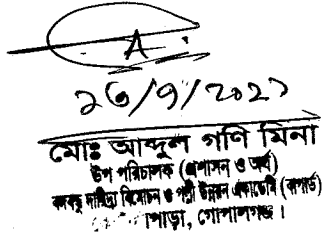 A
২৬/৭/২০২১
মোঃ আব্দুল গণি মিনা
উপ পরিচালক (প্রশাসন ও অর্থ)
বঙ্গবন্ধু দারিদ্র্য বিমোচন ও পল্লী উন্নয়ন একাডেমি (বাপার্ড)
পাড়া, গোপালগঞ্জ।